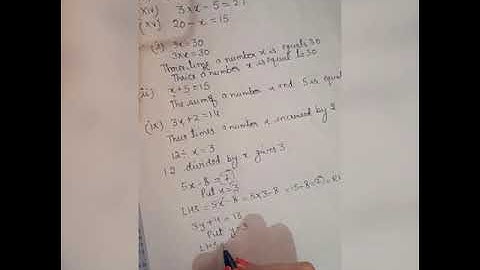 xiv) 3xx-5=21
(xv) 20-x=15
(i) 3x=30
3xx=30
Three times a number x is equals 30
Thrice a number x is equal to 30
(ii) x+5=15
The sum of a number x and 5 is equal
(ix) 3x+2=14
Three times a number x increased by 2
12÷x=3
12 divided by x gives 3
5x-8=7
Put x=3
LHS=5x-8=5x3-8=15-8=7=R
3y+4=13
Put y=3
LHS=